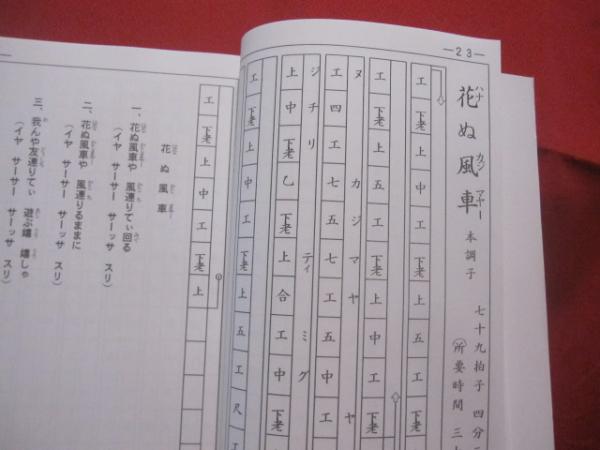 ―23―
花ぬ風車 本調子
ハナ カジマヤー
七十九拍子 四分
所要時間 三十
工 下老 上 中 工 下老 上 五 工 下老
工 下老 上 五 工 下老 上 中 工 下老
ヌ カジマヤ ヤ
工 四 工 七 五 七 工 五 中 工
ジチリ ティミグ
上 中 下老 乙 下老 上 合 工 中 下老
工 下老 上 中 工 下老 上 五 工 尺 工
工 下老 上 中 工 下老 上
花ぬ風車
一、花ぬ風車や 風連りてぃ回る
(イヤ サーサー サーッサ スリ)
二、花ぬ風車や 風連りるままに
(イヤ サーサー サーッサ スリ)
三、我んや友連りてぃ 遊ぶ嬉しゃ
(イヤ サーサー サーッサ スリ)